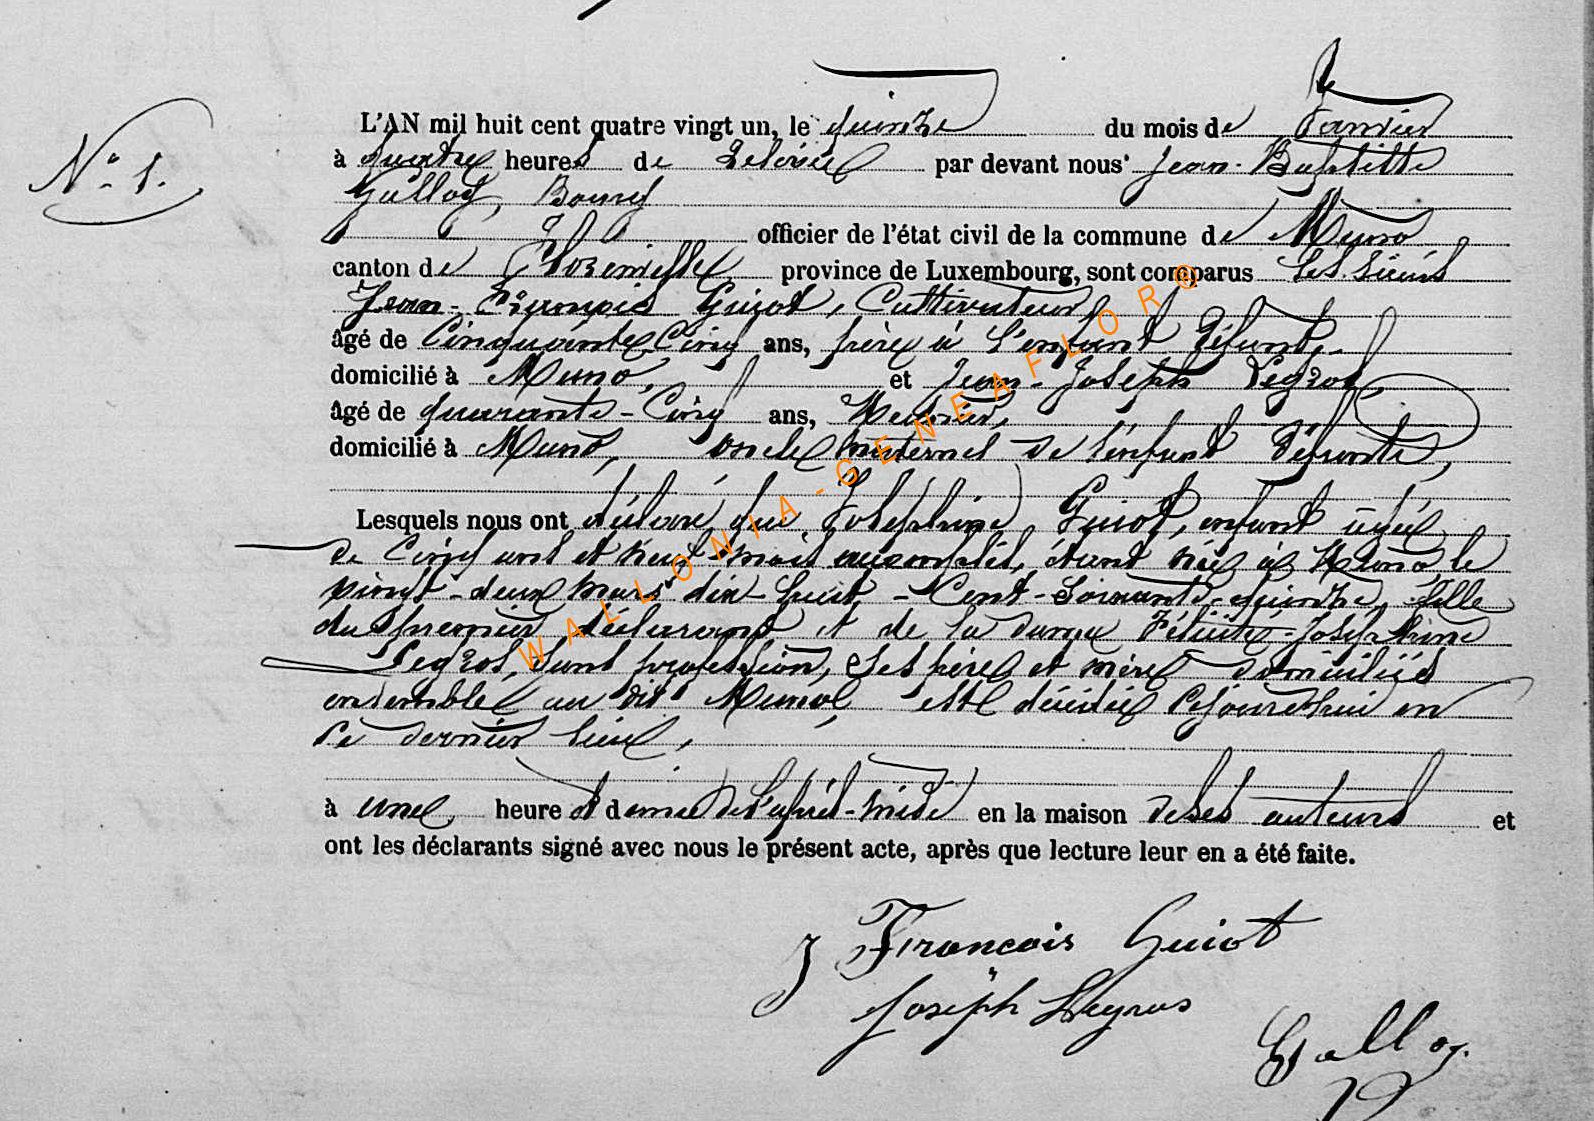 N° 1.
L'AN mil huit cent quatre vingt un, le quinze du mois de Janvier
à quatre heures de Relevée par devant nous Jean-Baptiste
Galloy, Bourg
officier de l'état civil de la commune de Muno
canton de Florenville province de Luxembourg, sont comparus les sieurs
Jean-François Guiot, Cultivateur,
âgé de Cinquante-Cinq ans, père à l'enfant défunt,
domicilié à Muno, et Jean-Joseph Legros,
âgé de quarante-Cinq ans, Meunier,
domicilié à Muno, oncle maternel de l'enfant défunte,
Lesquels nous ont déclaré que Joséphine Guiot, enfant âgée
de Cinq ans et neuf mois accomplis, étant née à Muno le
vingt-deux mars dix-huit-Cent-Soixante-quinze, fille
du premier déclarant et de la dame Félicité-Joséphine
Legros, sans profession, ses père et mère domiciliés
ensemble au dit Muno, est décédée cejourd'hui en
ce dernier lieu,
à une heure et demie de l'après-midi en la maison de ses auteurs et
ont les déclarants signé avec nous le présent acte, après que lecture leur en a été faite.
J François Guiot
Joseph Legros
Galloy
WALLONIA-GENEAFLOR®